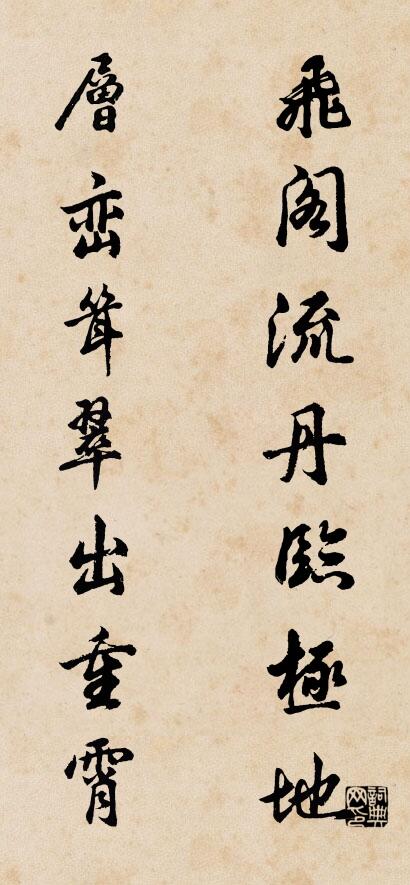 飛阁流丹臨極地
層峦耸翠出重霄
詞典网印